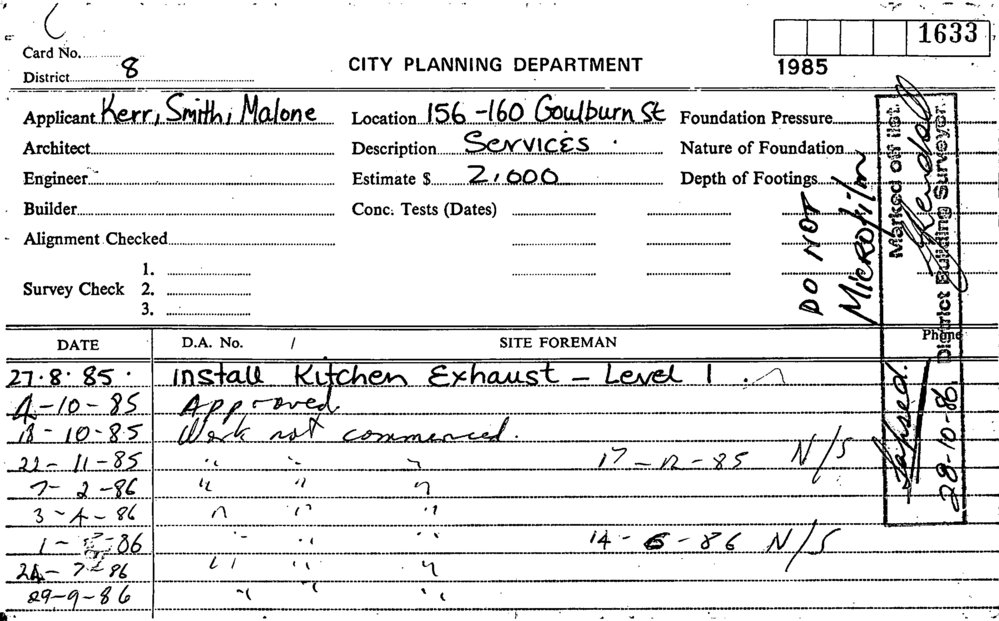 1633
Card No.
1985
District 8
CITY PLANNING DEPARTMENT
Applicant Kerr, Smith, Malone
Location 156 - 160 Goulburn St
Foundation Pressure
Architect
Description Services.
Nature of Foundation
Engineer
Estimate $ 2,000
Depth of Footings
Builder
Conc. Tests (Dates)
Alignment Checked
Survey Check
1.
2.
3.
DO NOT
Microfilm
Marked off
District Building Surveyor
Lapsed.
28-10-86
DATE
D.A. No. /
SITE FOREMAN
Phone
27.8.85. Install Kitchen Exhaust - Level 1.
4-10-85 Approved
18-10-85 Work not commenced.
22-11-85 " " " 17-12-85 N/S
7-2-86 " " "
3-4-86 " " "
1- -86 " " " 14-6-86 N/S
24-7-86 " " "
29-9-86 " " "